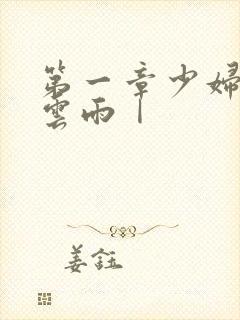 第一章少婦
雲雨｜
姜鈺